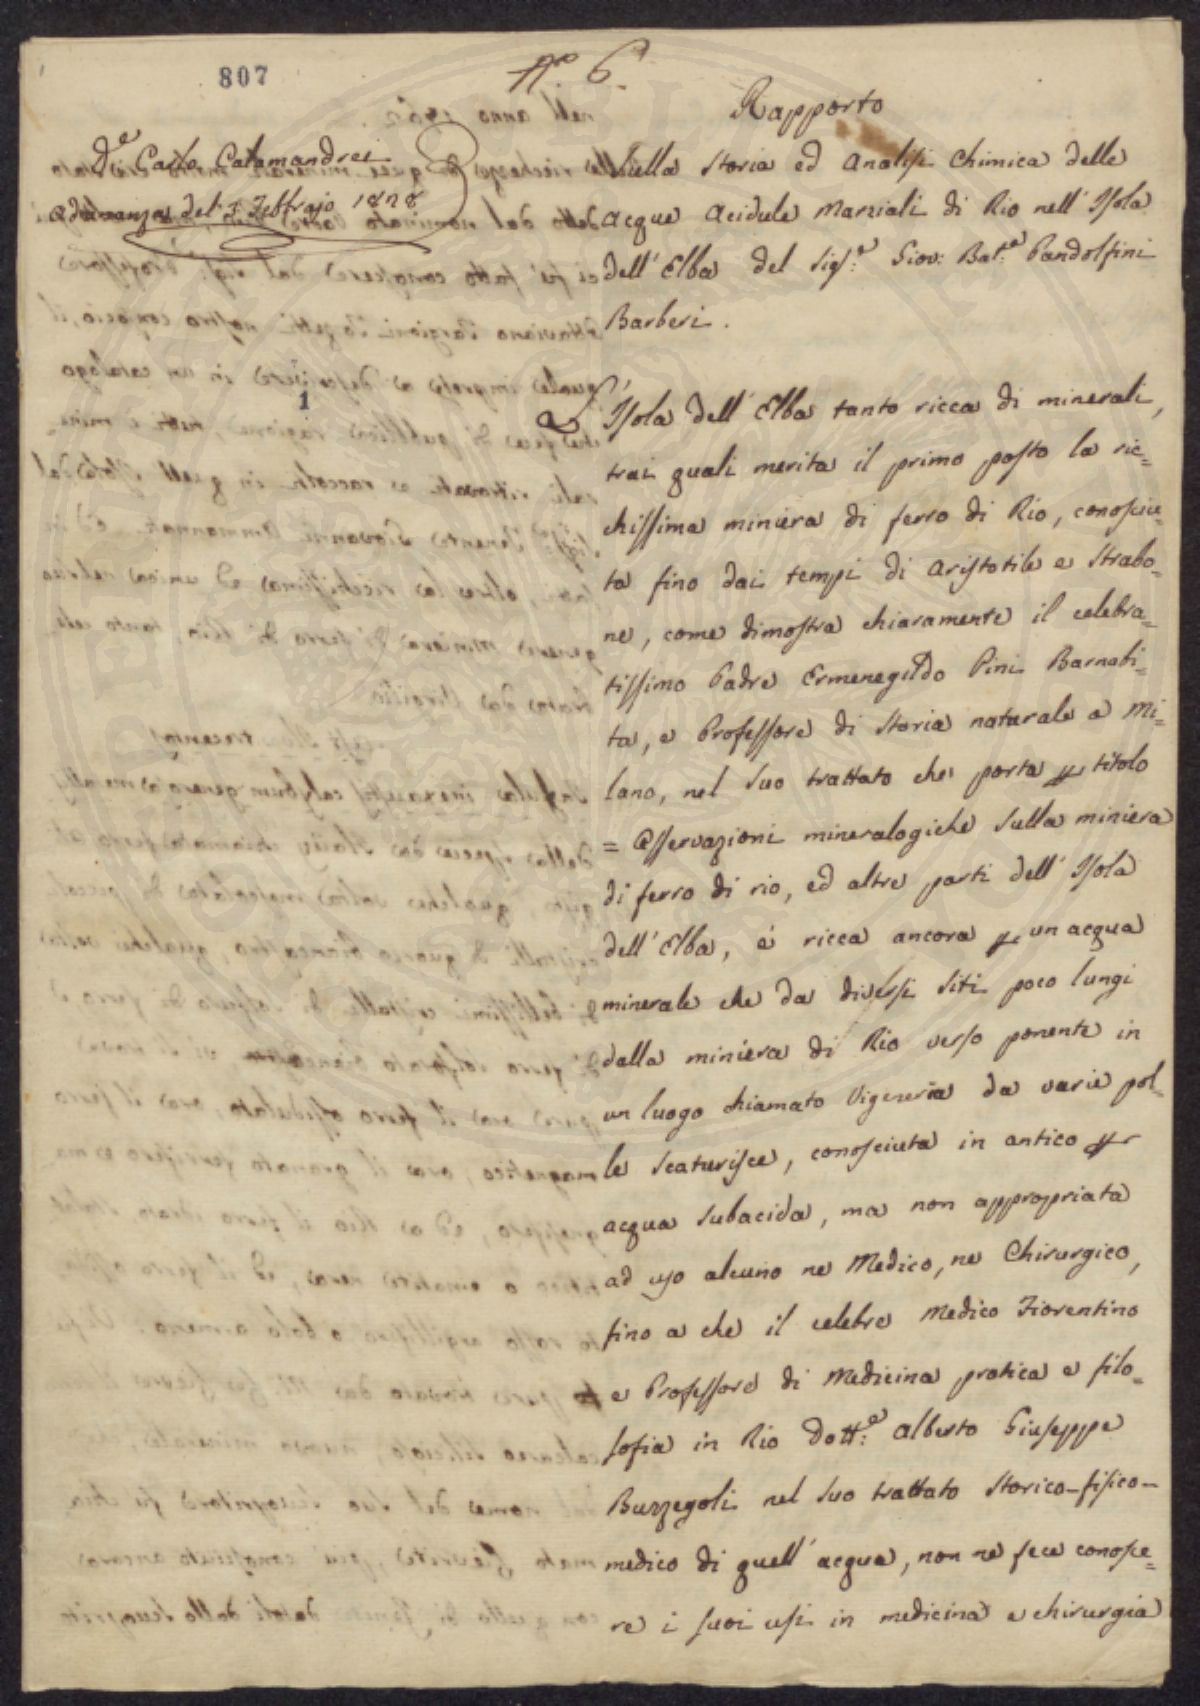 807
N.º 6.
De Carlo Calamandrei
Adunanza del 3. Febbrajo 1828
1
Rapporto
Sulla Storia ed Analisi Chimica delle
Acque Acidule Marziali di Rio nell' Isola
dell' Elba del Sigʳ:ᵉ Giov: Bat:ᵃ Pandolfini
Barberi.
L' Isola dell' Elba tanto ricca di minerali,
trai quali merita il primo posto la ric=
chissima miniera di ferro di Rio, conosciu=
ta fino dai tempi di Aristotile e Strabo=
ne, come dimostra chiaramente il celebra=
tissimo Padre Ermenegildo Pini Barnabi=
ta, e Professore di Storia naturale a Mi=
lano, nel suo trattato che porta per titolo
= Osservazioni mineralogiche sulla miniera
di ferro di rio, ed altre parti dell' Isola
dell' Elba, è ricca ancora per un acqua
minerale che da diversi siti poco lungi
dalla miniera di Rio verso ponente in
un luogo chiamato Vigneria da varie pol=
le scaturisce, conosciuta in antico per
acqua subacida, ma non appropriata
ad uso alcuno ne Medico, ne Chirurgico,
fino a che il celebre Medico Fiorentino
e Professore di Medicina pratica e filo=
sofia in Rio Dott:ᵉ Alberto Giuseppe
Buzzegoli nel suo trattato Storico-fisico-
medico di quell' acqua, non ne fece conosce=
re i suoi usi in medicina e chirurgia